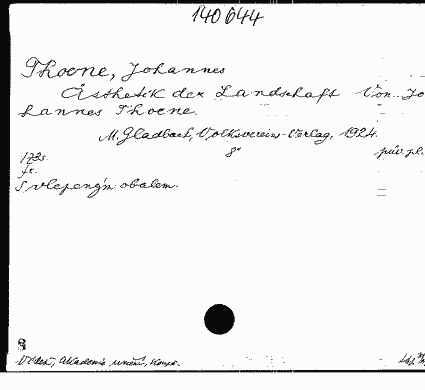 140644
Thoene, Johannes
Ästhetik der Landschaft Von Jo
hannes Thoene.
M. Gladbach, Volksvereins-Verlag, 1924.
173s. 8° pův. pl.
fr.
S vlepeným obalem.
Akademie umění,